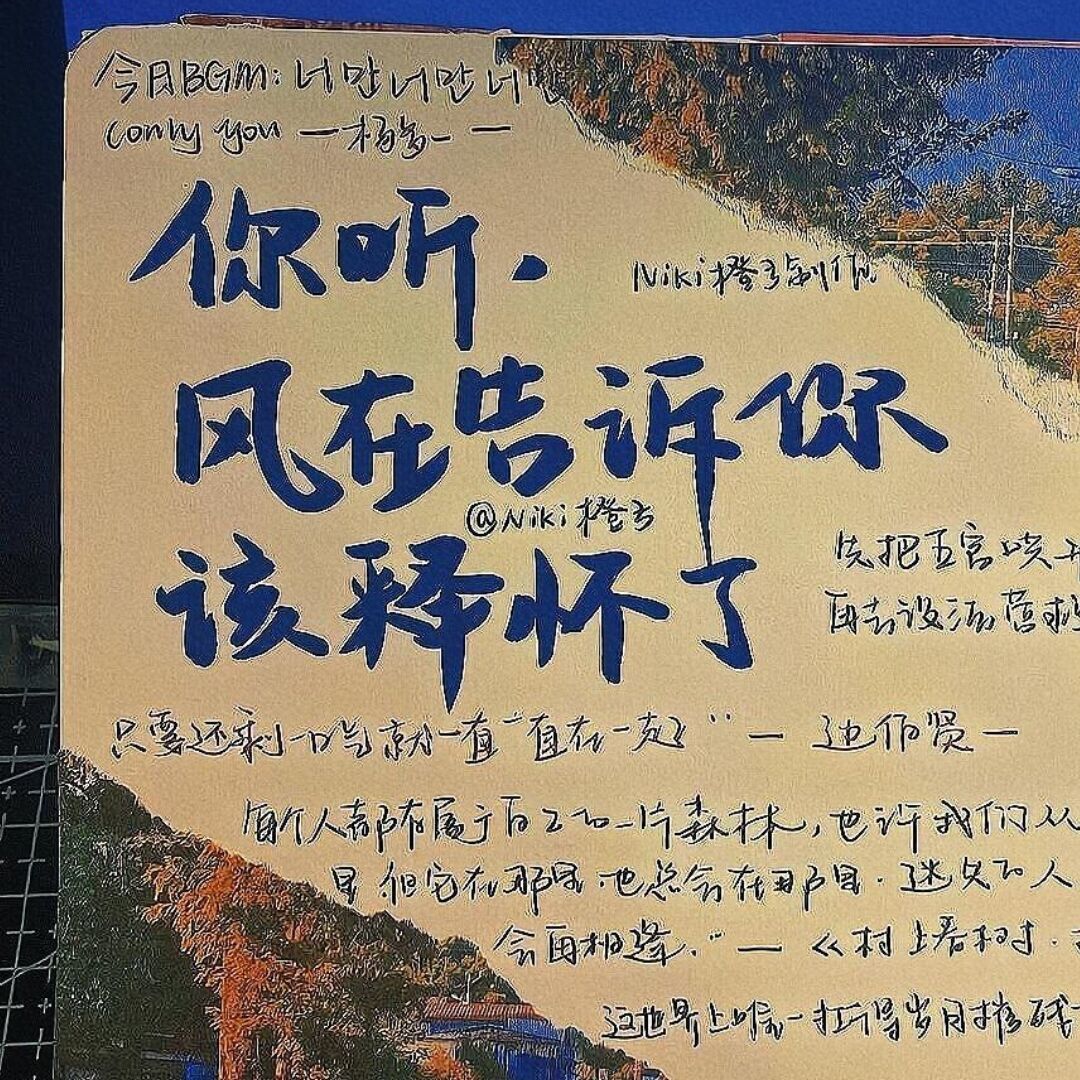 今日BGM:너만너만너만
(only you 一杨多一 一
你听.
Niki橙子制作.
风在告诉你
@Niki橙子
该释怀了
先把五官哄开
再去设法营救
只要还剩一口气就一直"直在一起" — 边伯贤 —
每个人都有属于自己的一片森林,也许我们从
里.但它在那里.也总会在那里.迷失的人
会再相逢." — 《村上春树.
这世界上唯一扛得岁月摧残